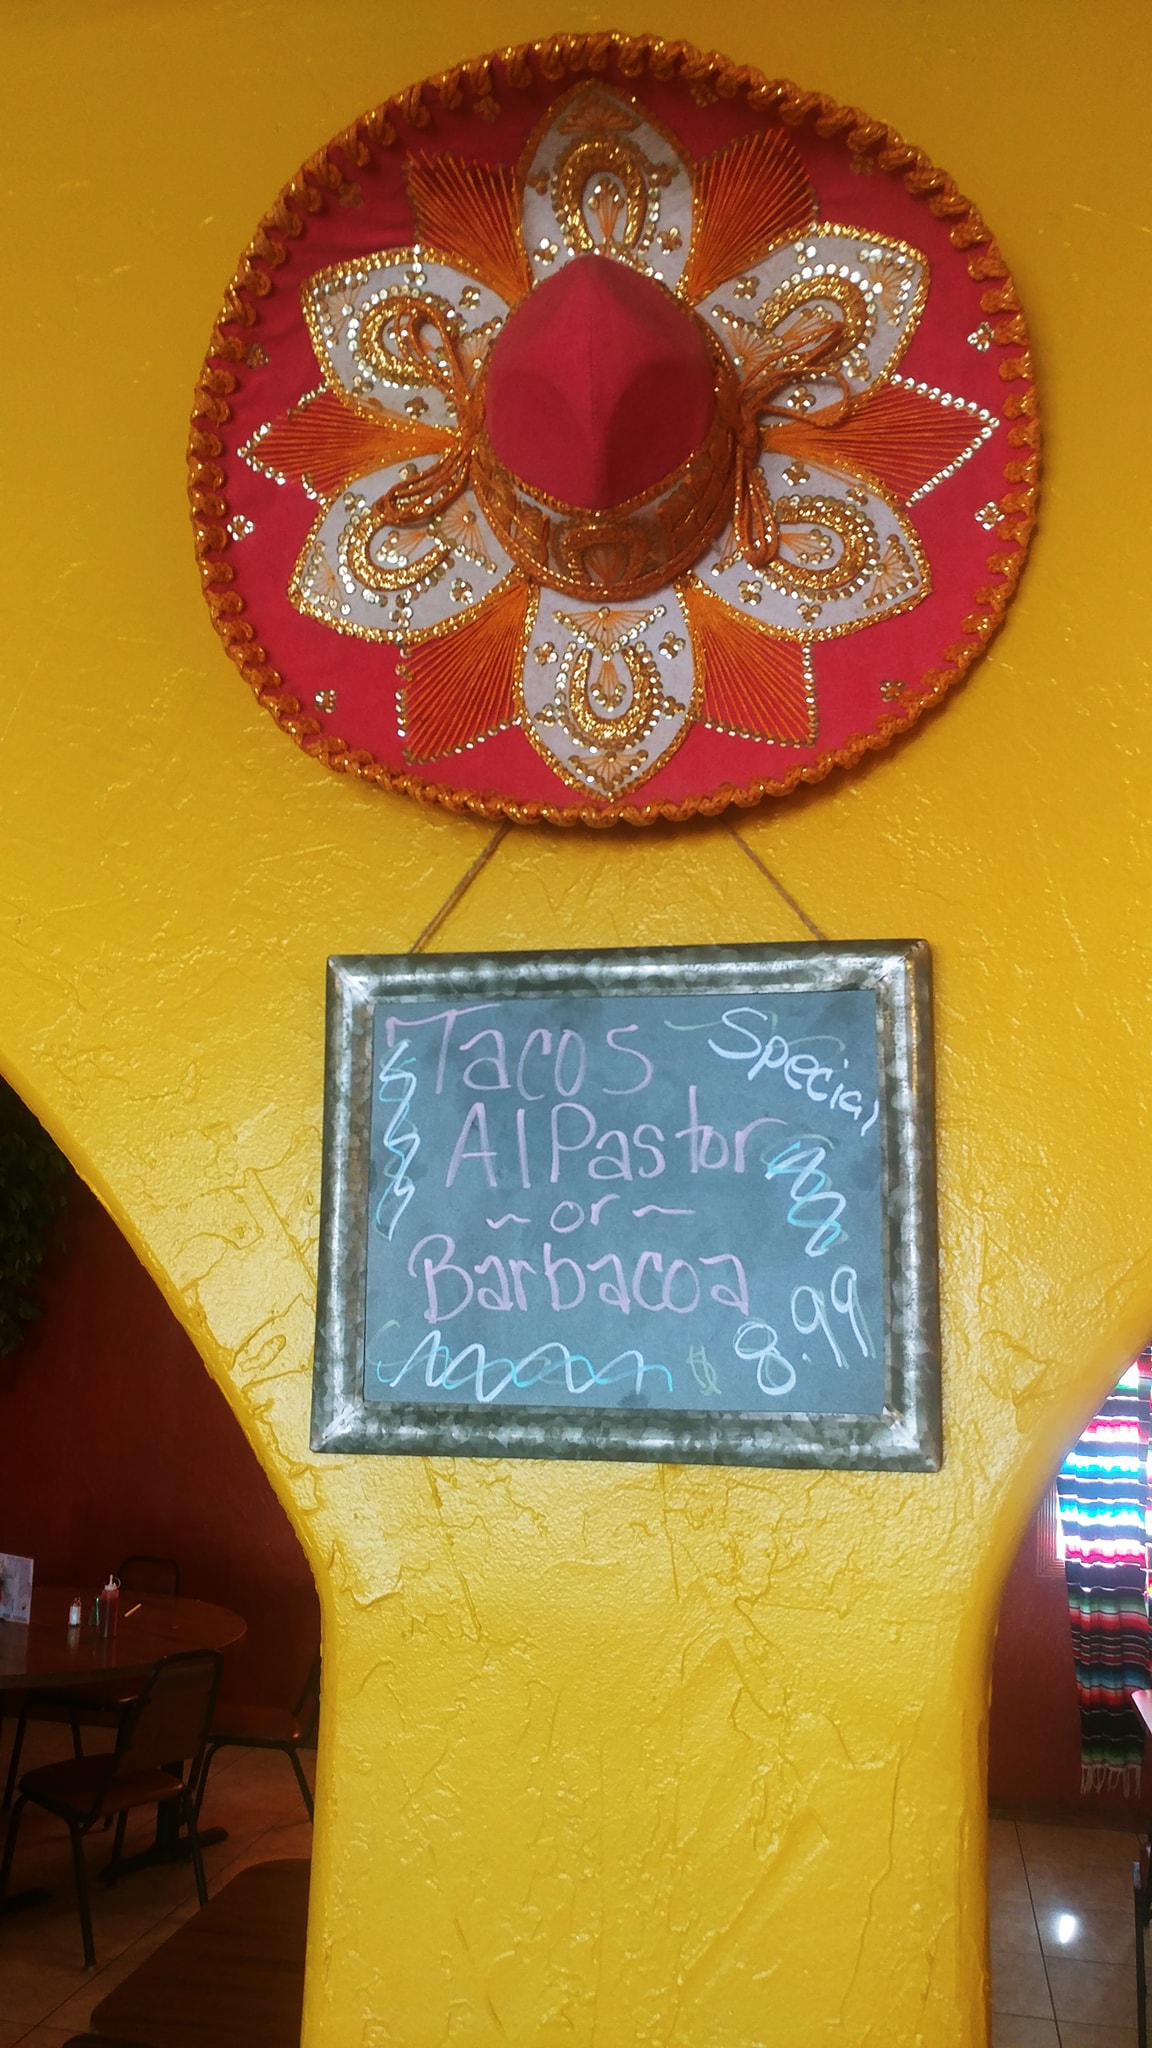 Special
Tacos
Al Pastor
~ or ~
Barbacoa
$ 8.99